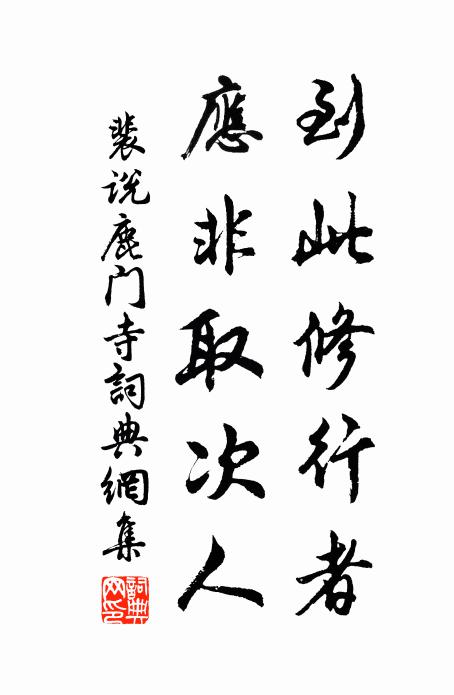 到此修行者
應非取次人
裴說鹿門寺詞典網集
詞典網印